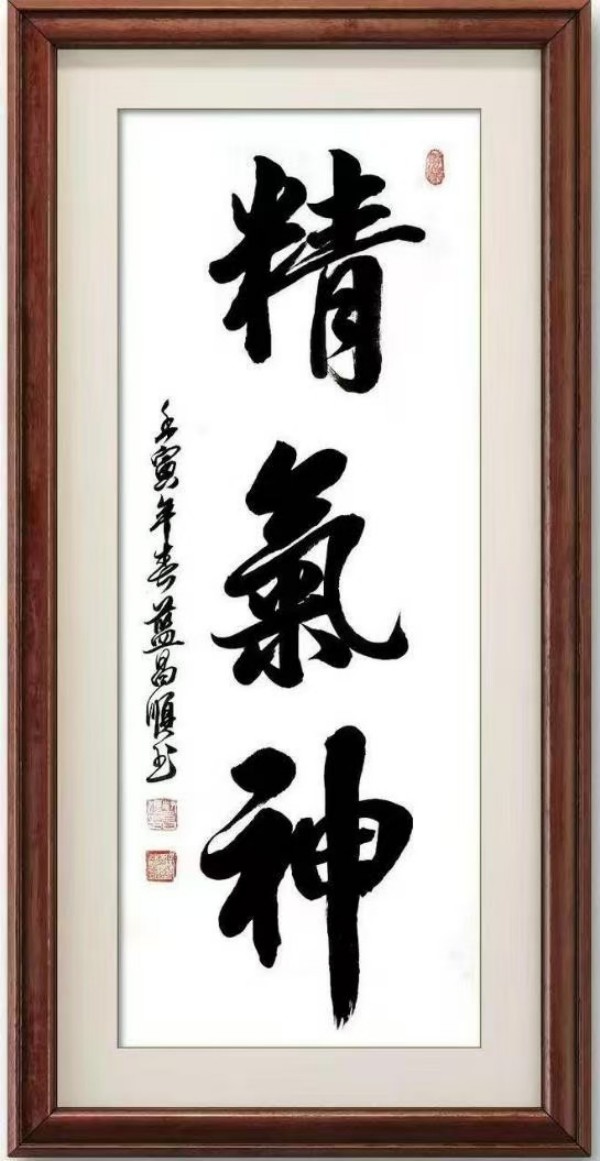 精氣神
壬寅年春藍昌順書